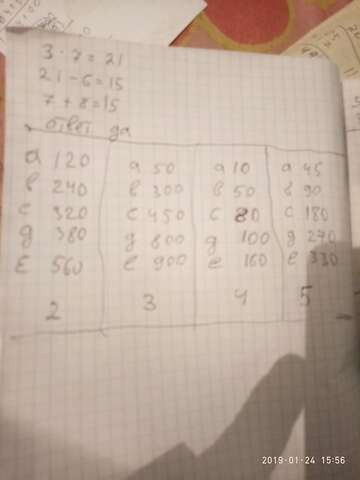 3 · 7 = 21
21 - 6 = 15
7 + 8 = 15
ответ да
a 120 a 50 a 10 a 45
b 240 b 300 b 50 b 90
c 320 c 450 c 80 c 180
g 380 g 800 g 100 g 270
E 560 e 900 e 160 e 330
2 3 4 5
2019-01-24 15:56